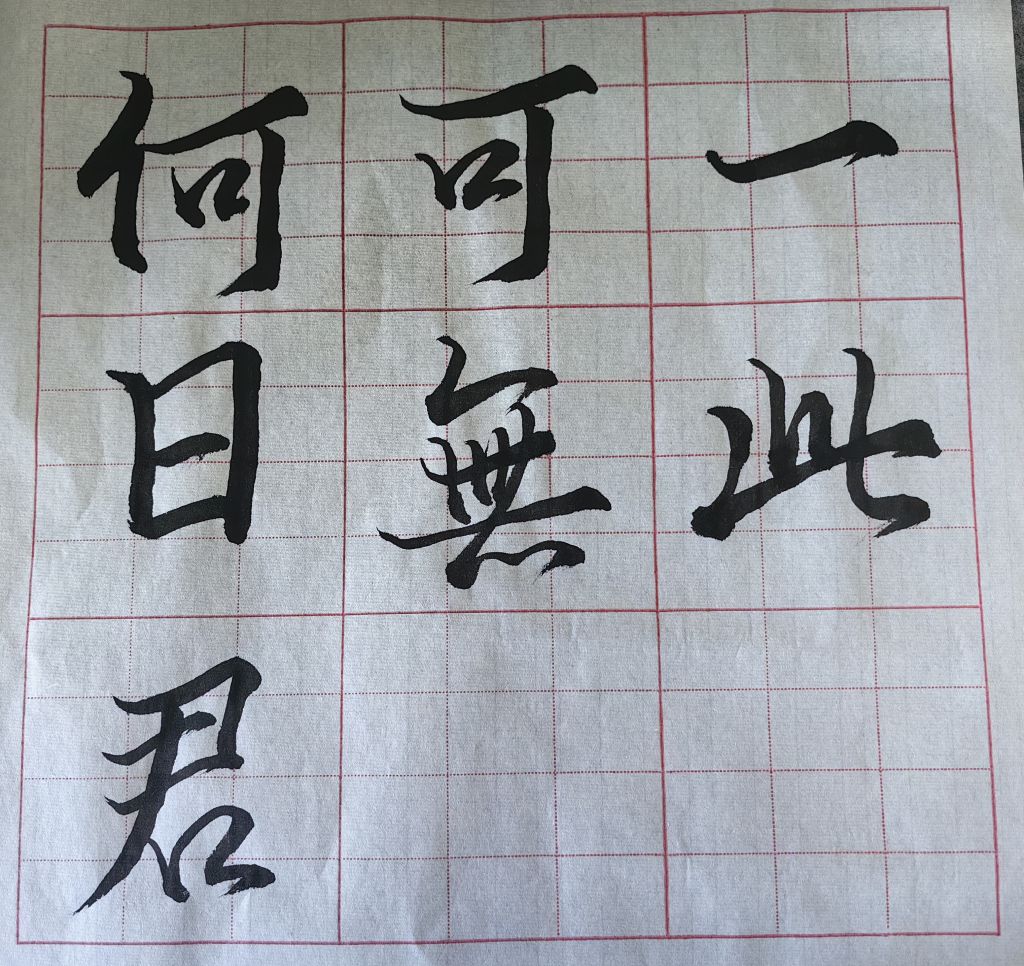 何可一
日無此
君